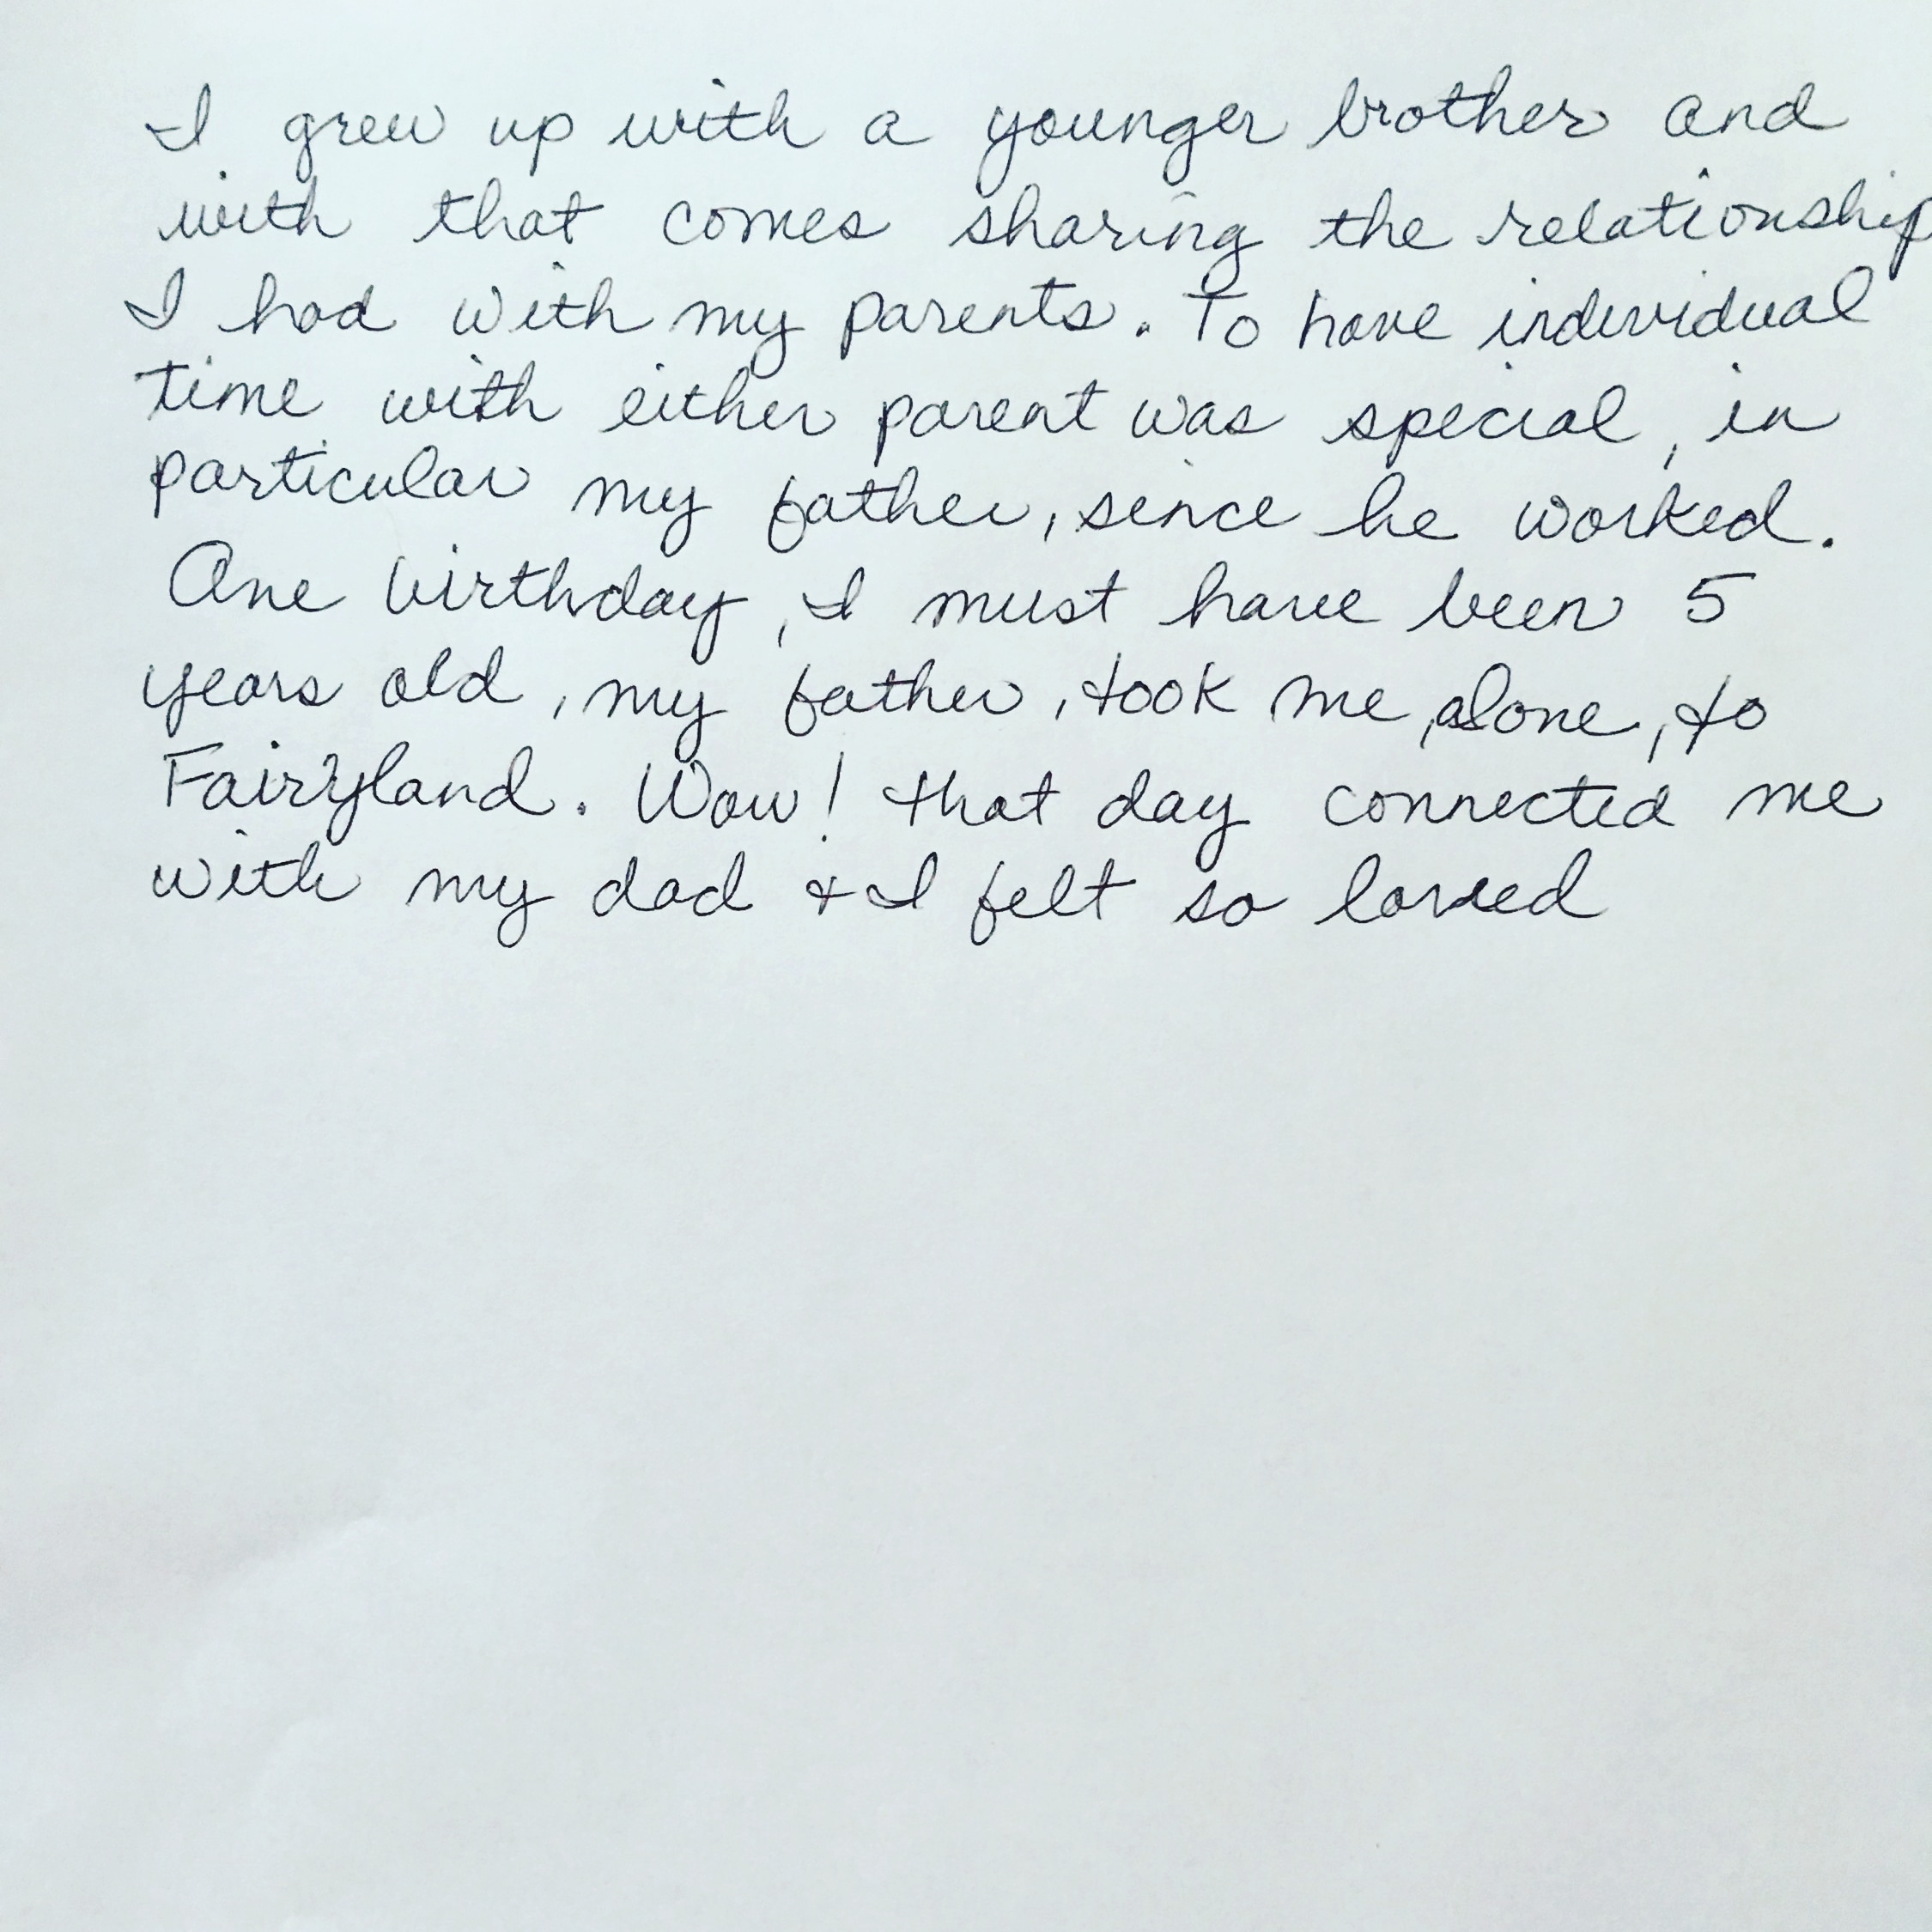 I grew up with a younger brother and
with that comes sharing the relationship
I had with my parents. To have individual
time with either parent was special, in
particular my father, since he worked.
One birthday, I must have been 5
years old, my father, took me, alone, to
Fairyland. Wow! that day connected me
with my dad & I felt so loved